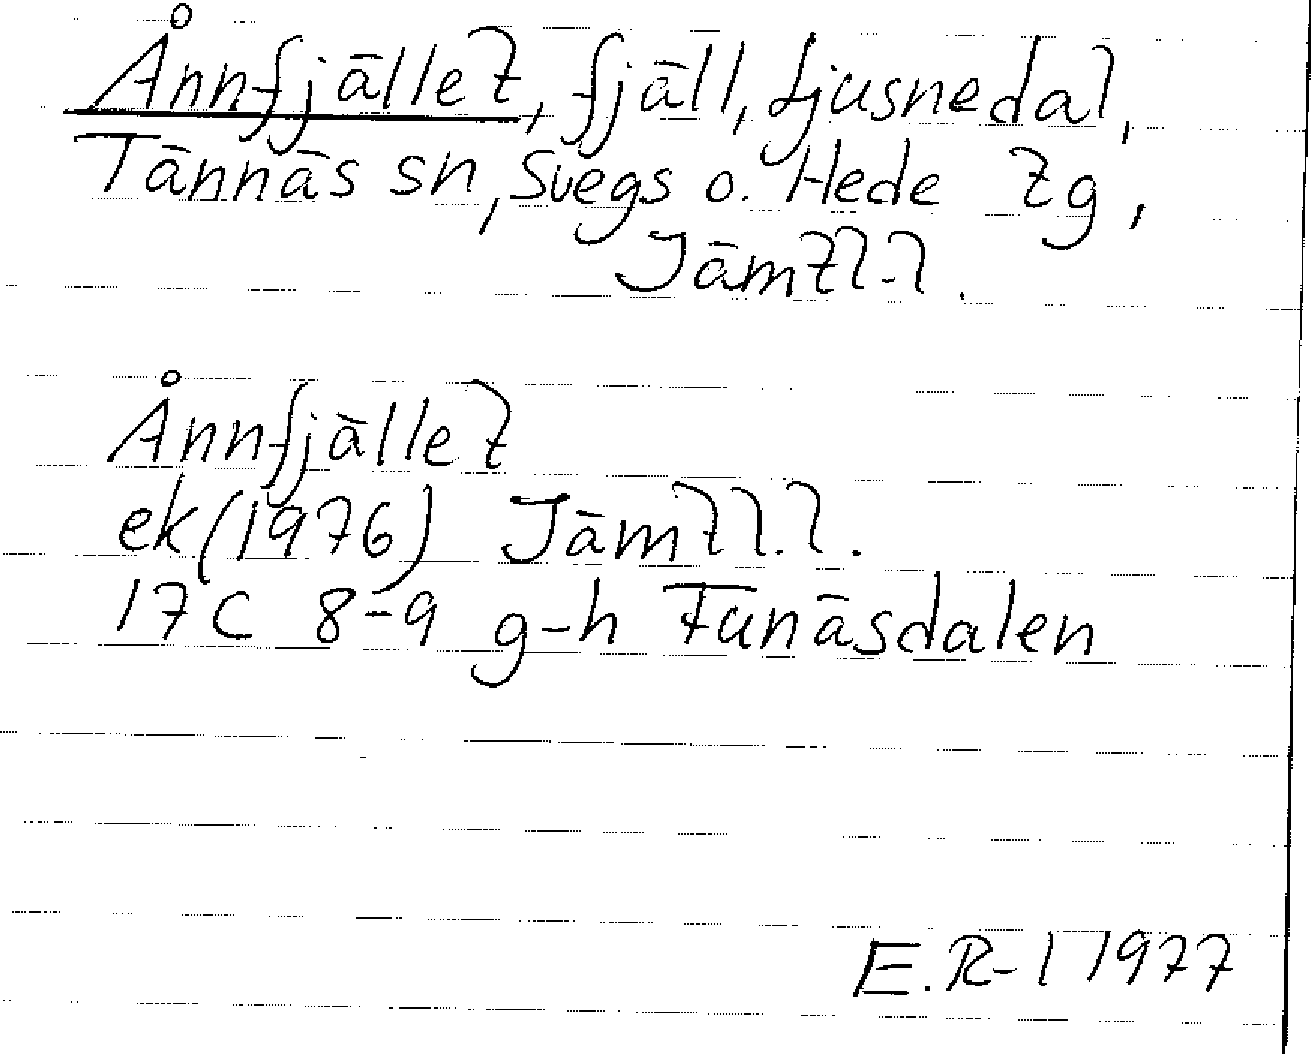 Ånnfjället, fjäll, Ljusnedal,
Tännäs sn, Svegs o. Hede tg,
Jämtl. l.
Ånnfjället
ek (1976) Jämtl. l.
17C 8-9 g-h Funäsdalen
E.R-l 1977